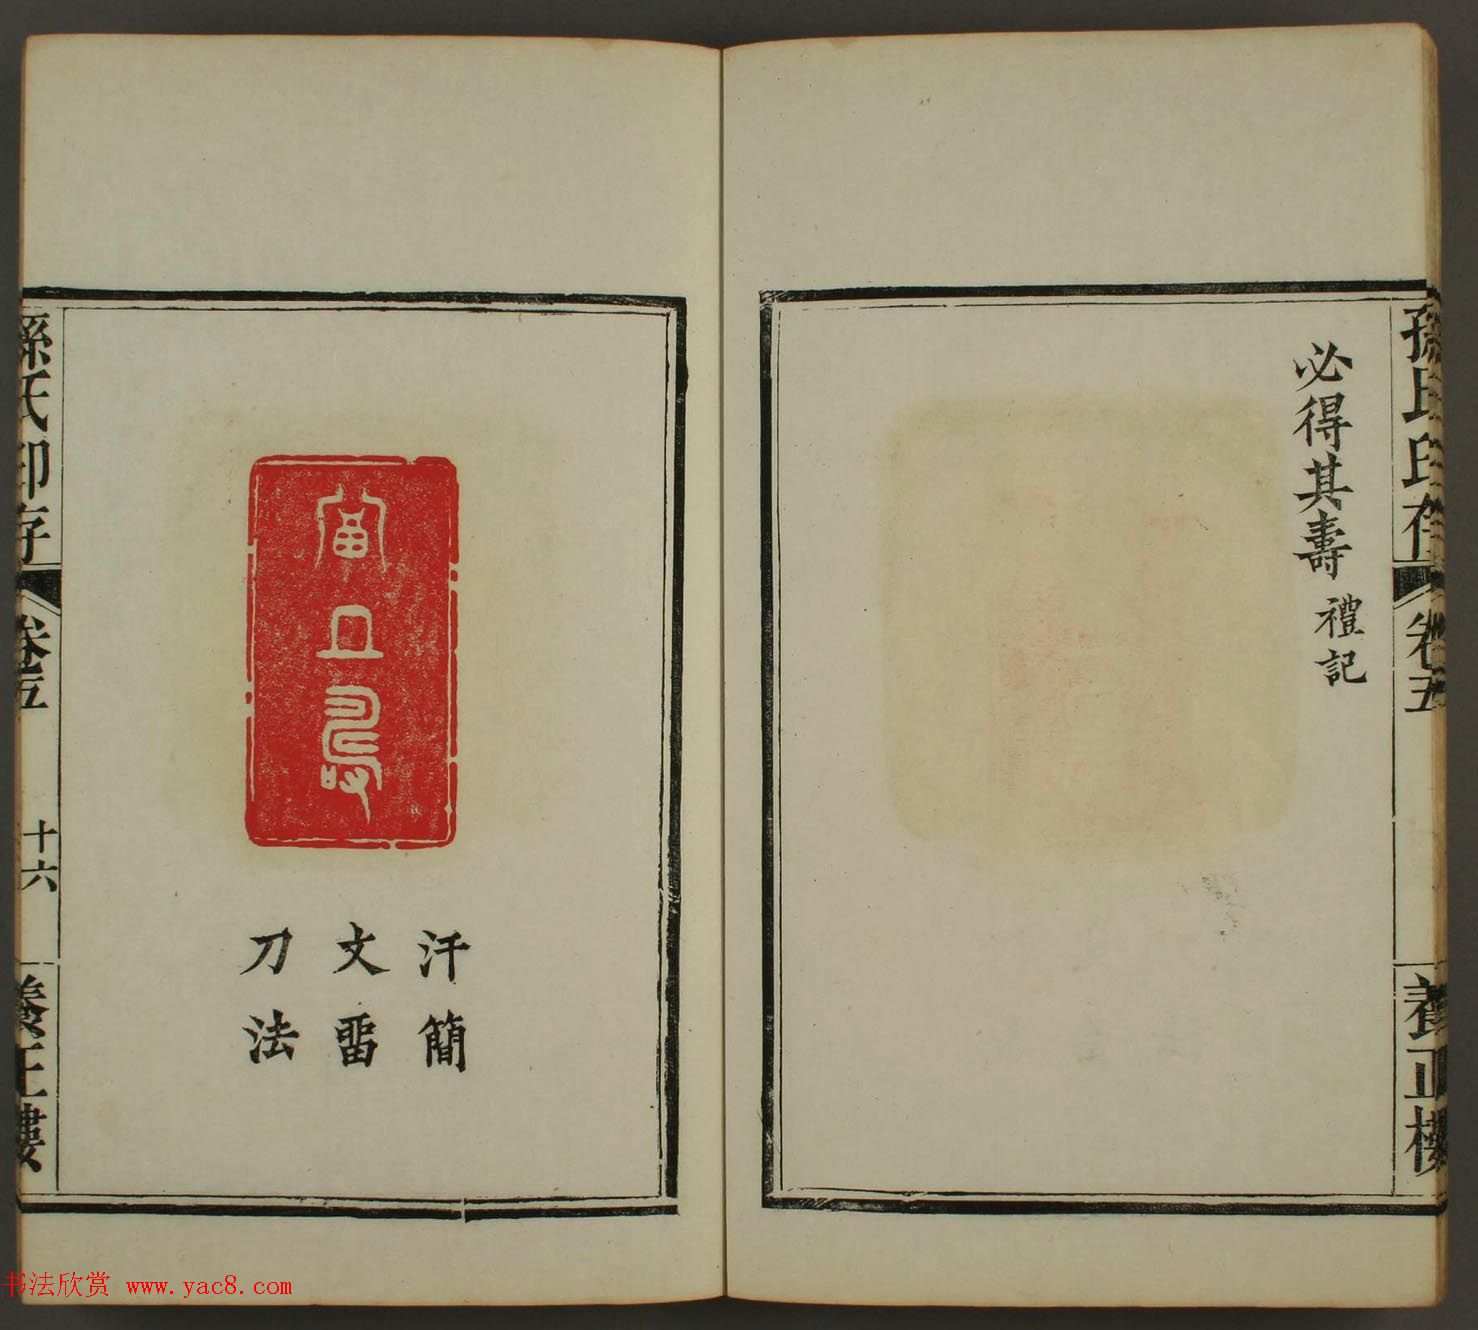 孫氏印存
卷五
養正樓
必得其壽 禮記
富且壽
汗簡
文畱
刀法
孫氏印存
卷五
十六
養正樓
书法欣赏 www.yac8.com